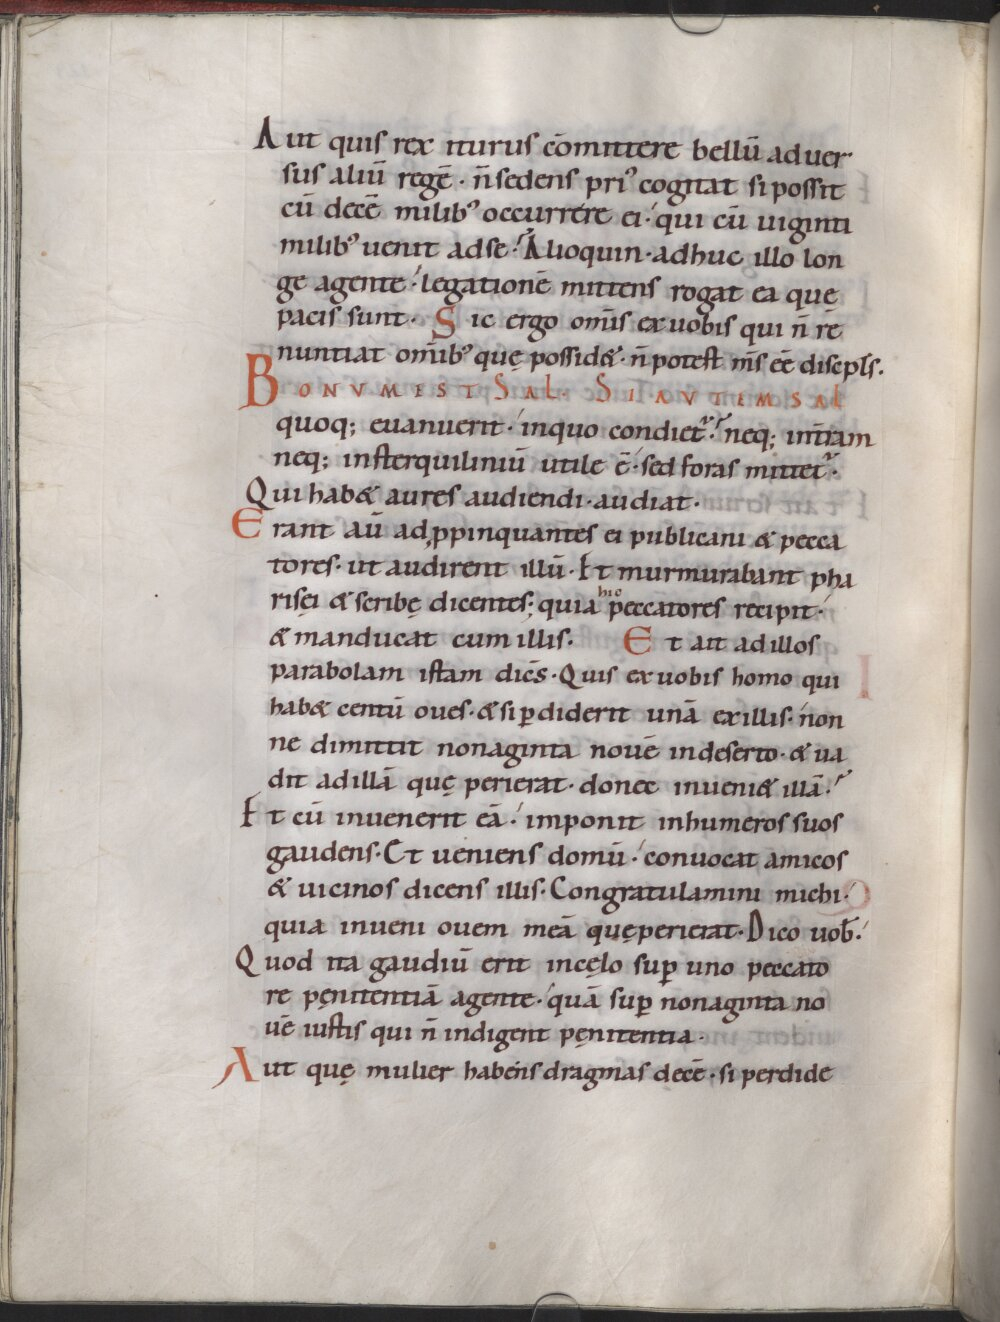 Aut quis rex iturus cōmittere bellū aduer
sus aliū regē · n̄ sedens pri᾿ cogitat si possit
cū decē milib᾿ occurrere ei · qui cū uiginti
milib᾿ uenit ad se · Alioquin · adhuc illo lon
ge agente · legationē mittens rogat ea quę
pacis sunt · Sic ergo om̄s ex uobis qui n̄ re
nuntiat om̄ib᾿ quę possid& · n̄ potest m̄s eē discpls.
BONVM EST SAL · SI AVTEM SAL
quoq; euanuerit · in quo condiet᾿ · neq; in t̄ram
neq; in sterquiliniū utile ē · sed foras mittet᾿ ·
Qui hab& aures audiendi · audiat ·
Erant aū adppinquantes ei publicani & pecca
tores · ut audirent illū · Et murmurabant pha
risęi & scribę dicentes; quia hic peccatores recipit ·
& manducat cum illis · Et ait ad illos
parabolam istam dic̄s · Quis ex uobis homo qui
hab& centū oues · & si p̱diderit unā ex illis · non
ne dimittit nonaginta nouē in deserto · & ua
dit ad illā quę perierat · donec inueni& illā ·
Et cū inuenerit eā · imponit in humeros suos
gaudens · Et ueniens domū · conuocat amicos
& uicinos dicens illis · Congratulamini michi ·
quia inueni ouem meā quę perierat · Dico uob̄ ·
Quod ita gaudiū erit in cęlo sup̱ uno peccato
re pęnitentiā agente · quā sup̱ nonaginta no
uē iustis qui n̄ indigent pęnitentia ·
Aut quę mulier habens dragmas decē · si perdide